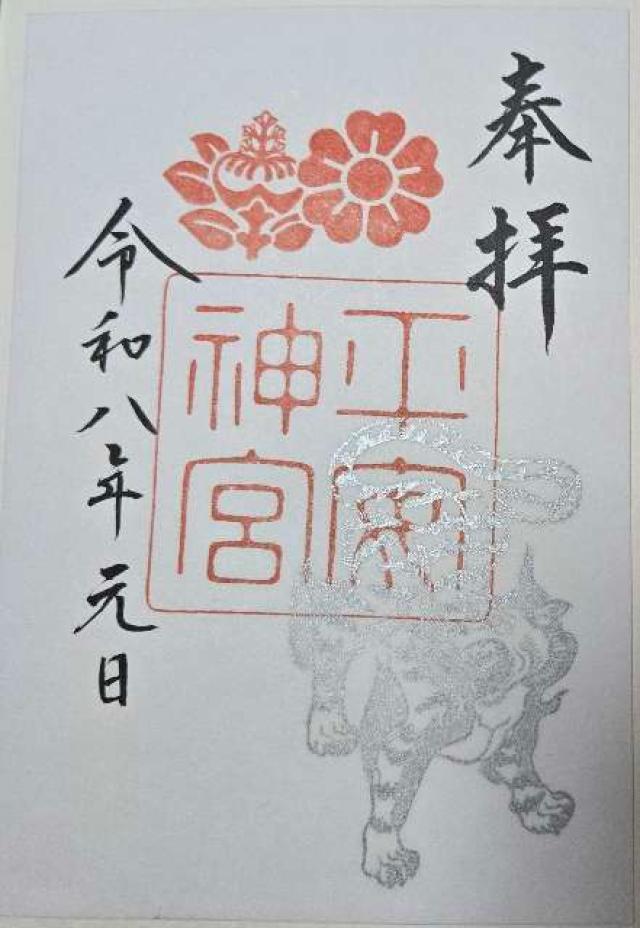 奉拝
平安
神宮
令和八年元日